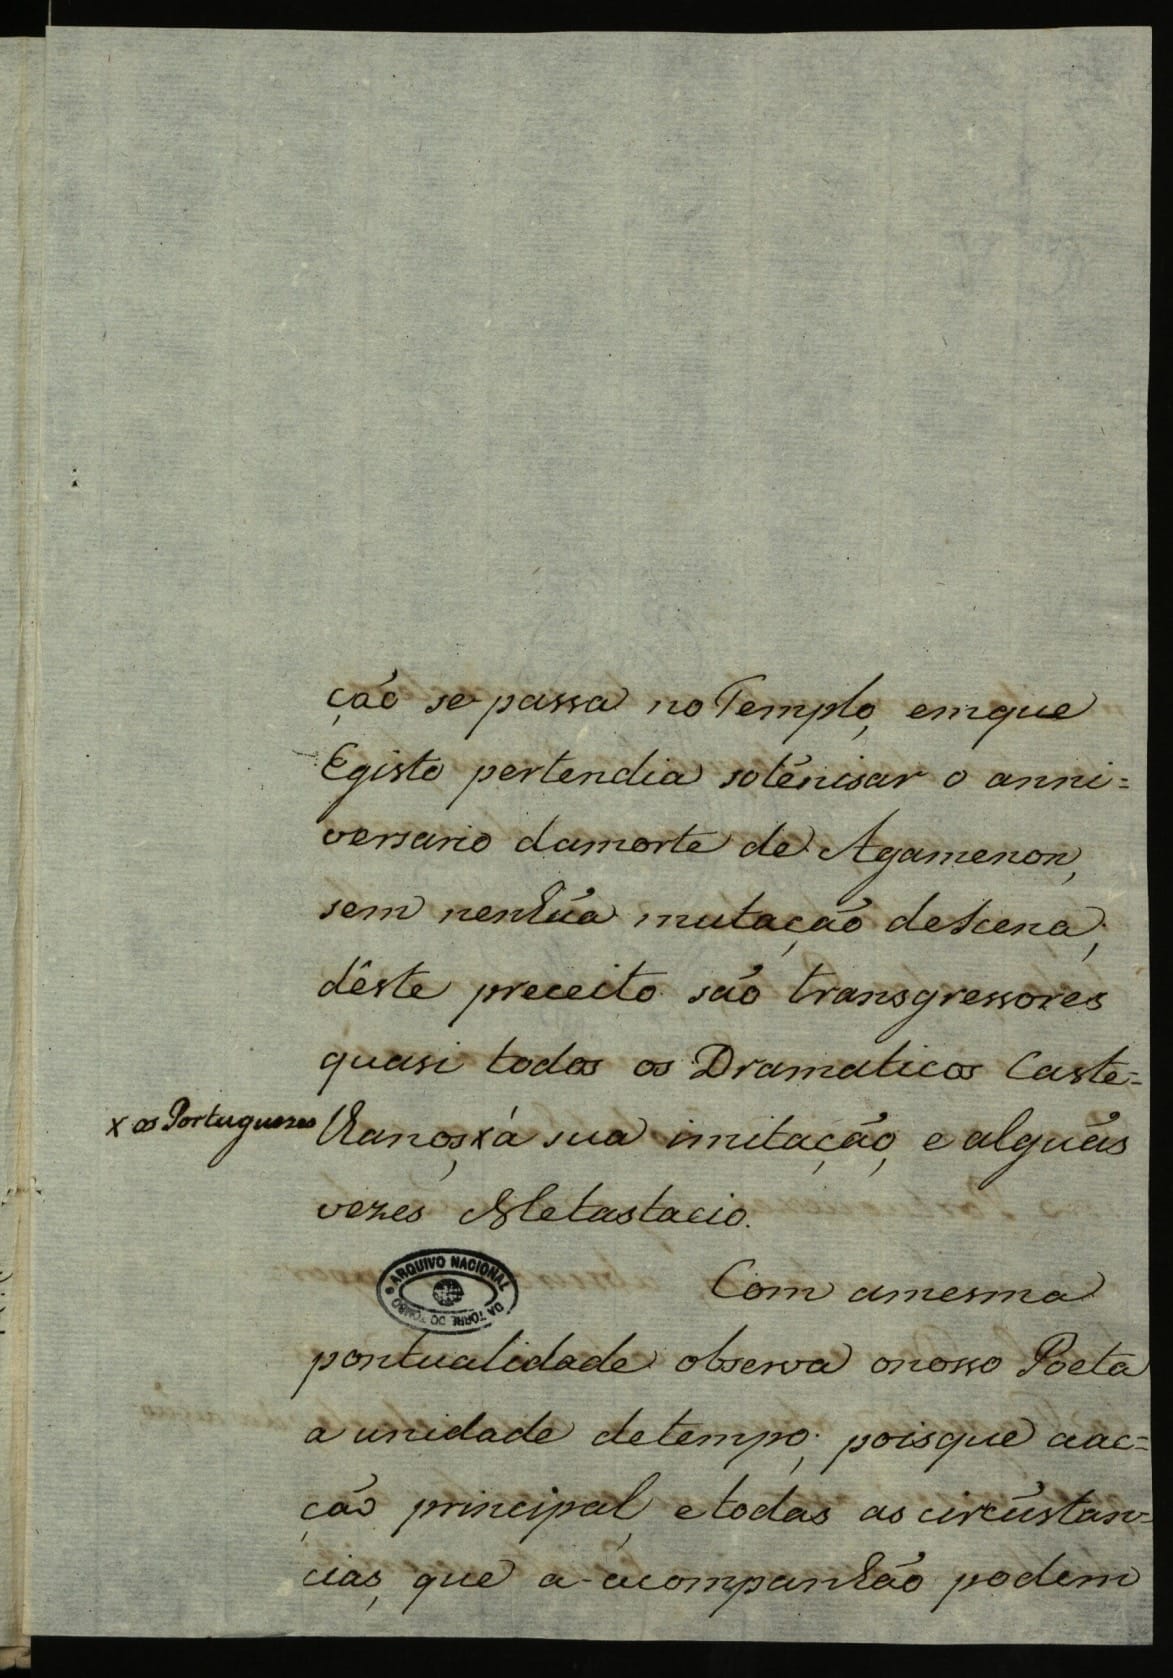 ção se passa no Templo, emque
Egisto pertendia solẽnisar o anni=
versario damorte de Agamenon,
sem nenhũa mutação deScena;
dêste preceito são transgressores
quasi todos os Dramaticos Caste=
x os Portuguezes
lhanos, x á sua imitação, e alguãs
vezes Metastacio.
ARQUIVO NACIONAL
DA TORRE DO TOMBO
Com amesma
pontualidade observa onosso Poeta
a unidade detempo; poisque aac=
ção principal, etodas as circũstan=
cias, que a acompanhão podem